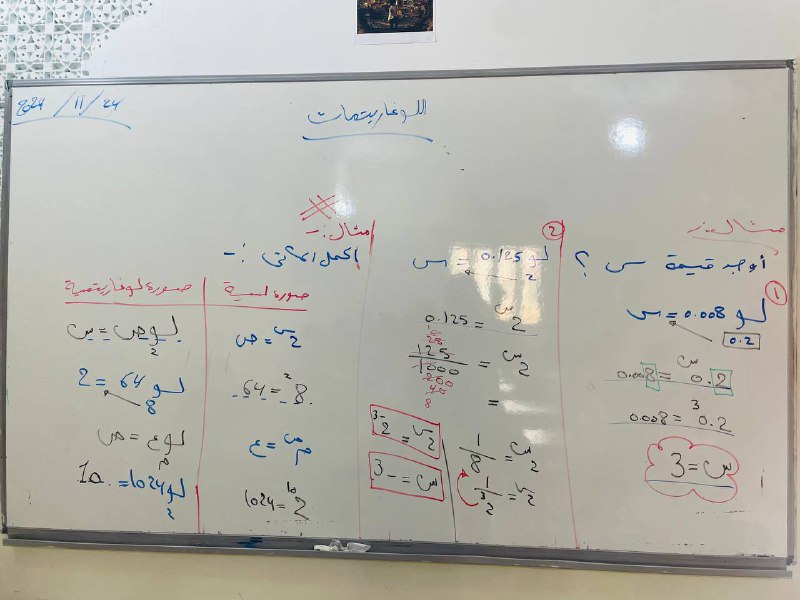 2024 / 11 / 24
اللوغاريتمات
مثال :-
أوجد قيمة س ؟
①
لو 0.008 = س
0.2
0.2 س = 0.008
0.2 3 = 0.008
س = 3
②
لو 0.125 = س
2
2 س = 0.125
2 س = 125 / 1000
25
200
40
8
=
2 س = 1 / 8
2 س = 1 / 2 3
2 س = 2 -3
س = -3
مثال :-
اكمل الآتي :-
صورة أسية
صورة لوغاريتمية
2 س = ص
لو ص = س
2
8 2 = 64
لو 64 = 2
8
م ص = ع
لو ع = ص
م
2 10 = 1024
لو 1024 = 10.
2